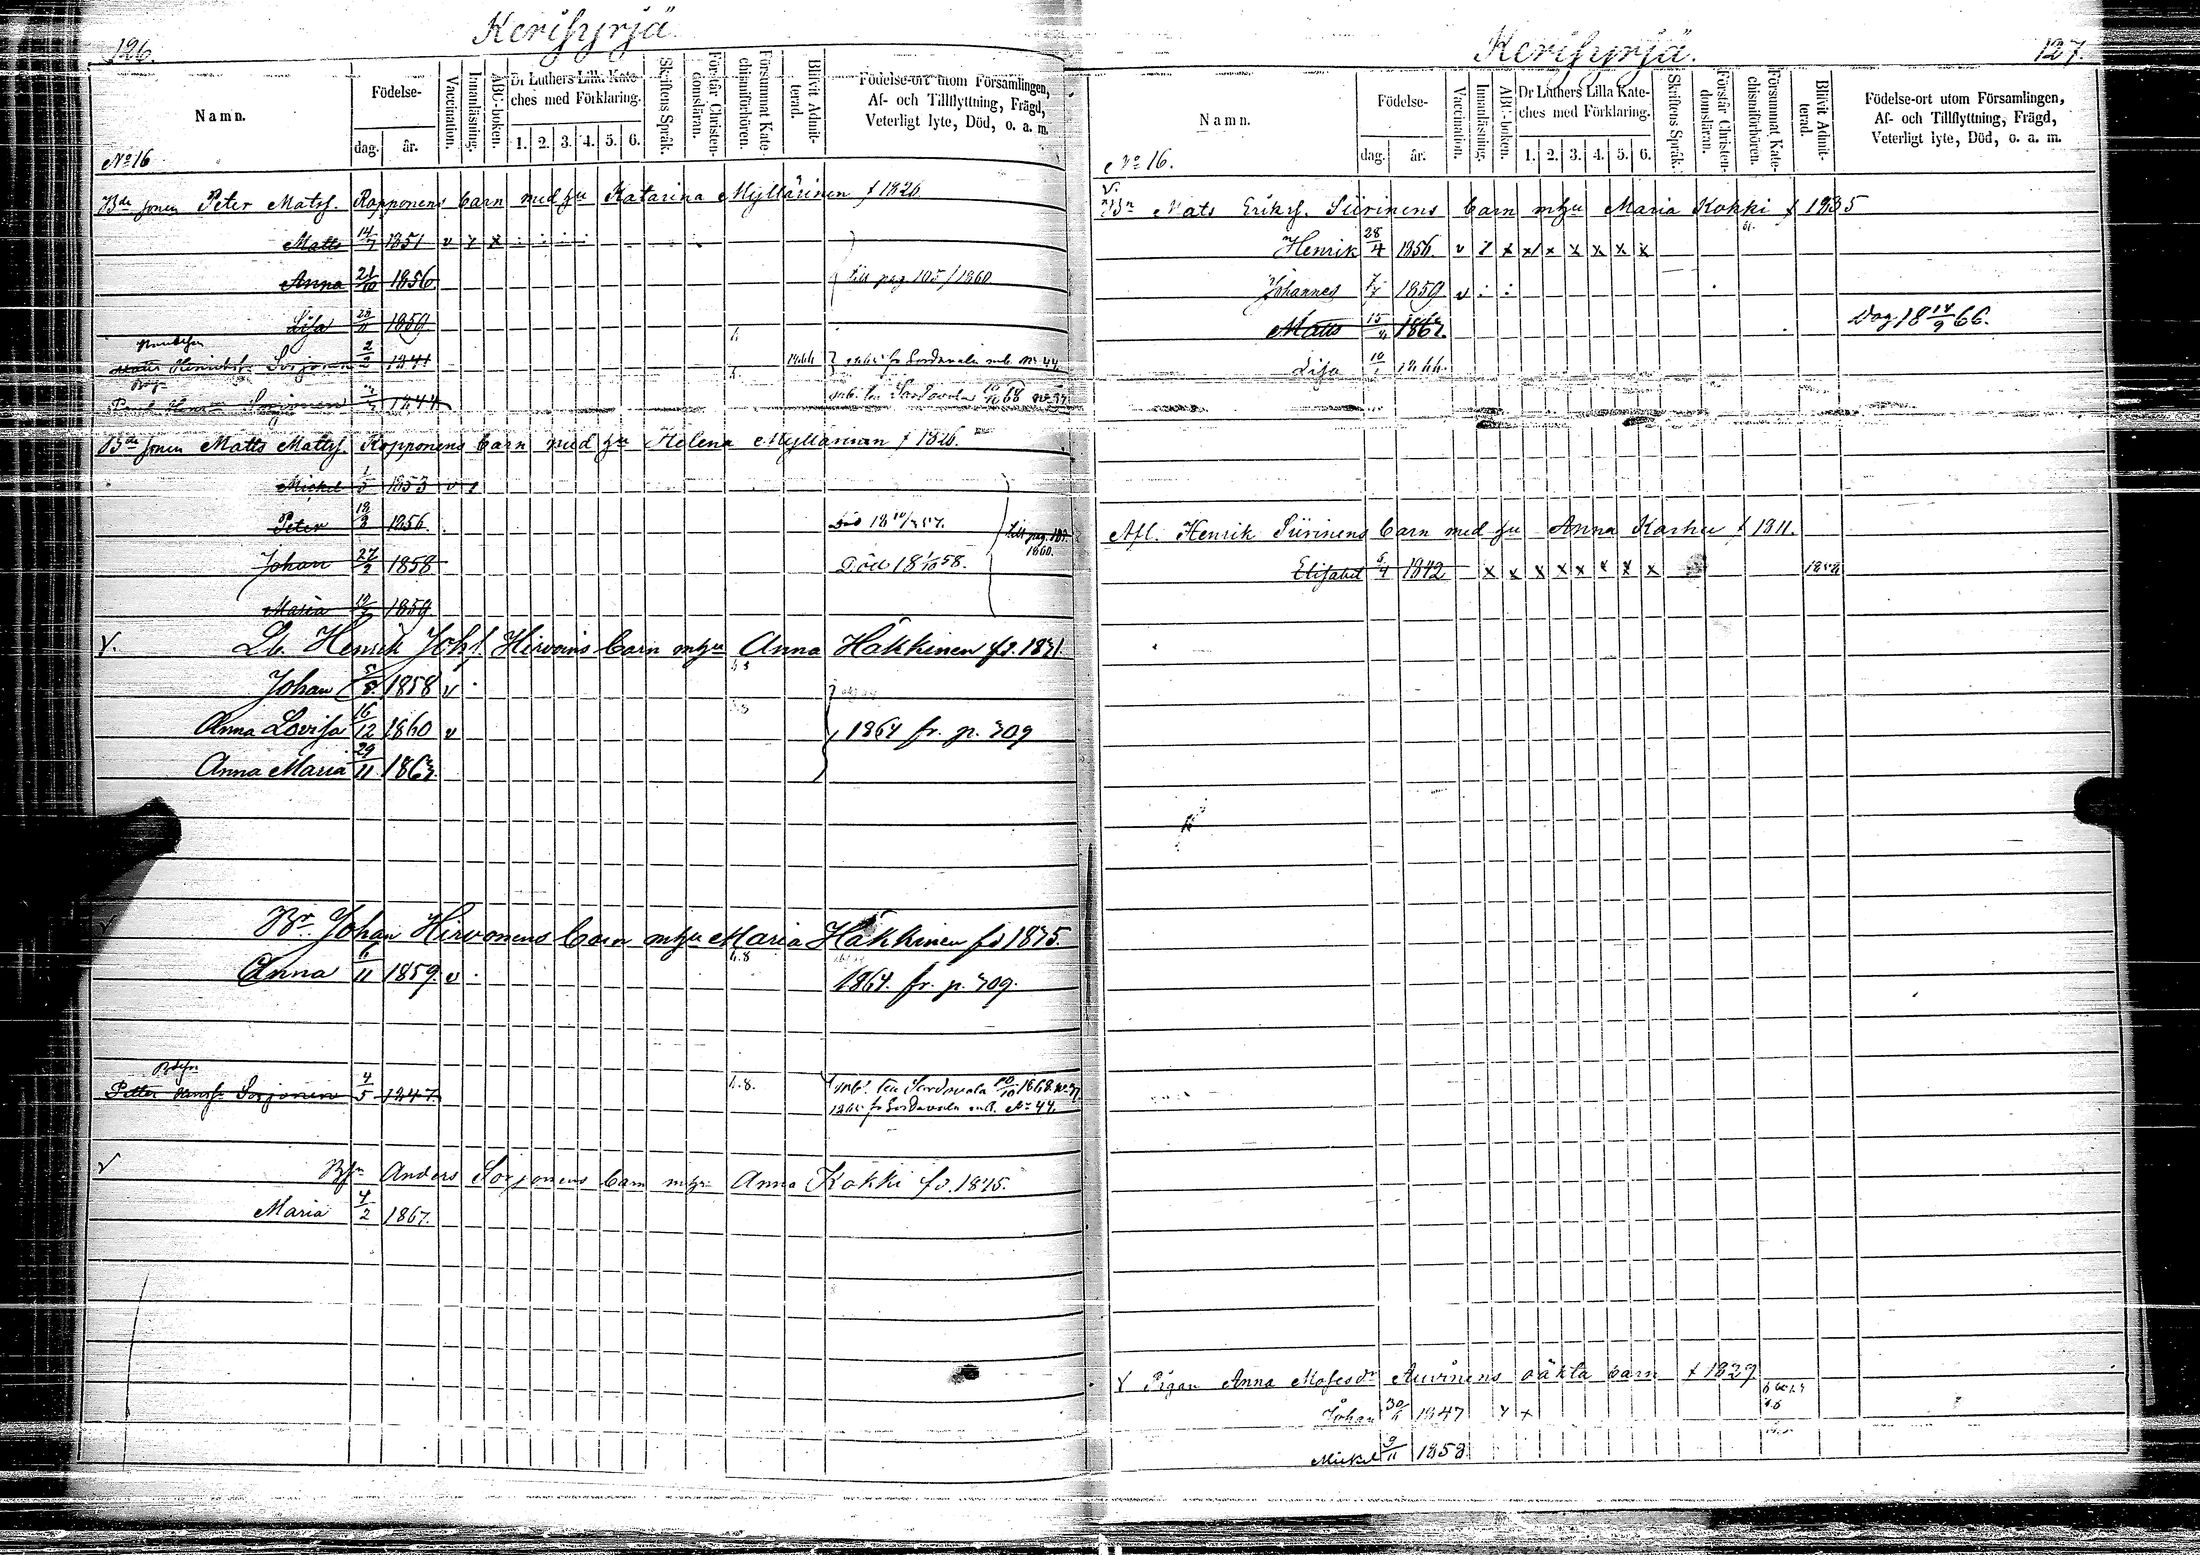 126.
Kerisyrjä
Namn.
Födelse-
dag.
år.
Vaccination.
Innanläsning.
ABC-boken.
Dr Luthers Lilla Kate-
ches med Förklaring.
1. 2. 3. 4. 5. 6.
Skriftens Språk.
Förstår Christen-
domsläran.
Försummat Kate-
chismiförhören.
Blivit Admit-
terad.
Födelse-ort utom Församlingen,
Af- och Tillflyttning, Frägd,
Veterligt lyte, Död, o. a. m.
No 16
Bde sonen Peter Matss. Ropponens barn med hu Katarina Myllärinen f 1826
Matts 14/7 1851 v
Anna 21/10 1856 till pag. 105/1860
Lisa 1859
Henrikss. Sorjonen 2/2 1841 fr Sordavala mb. No 44
Sorjonen 1844 mb. till Sordavala 10/10 68 No 37
Bde sonen Matts Mattss. Ropponens barn med hu Helena Myllärinen f 1826.
Michel 1/5 1853 v
Peter 1856 Död
Johan 27/2 1858 Död 18 1/10 58.
till pag. 1860.
Maria 1859
V. Lb. Henrik Johs. Hirvoins barn m hu Anna Häkkinen fd. 1831.
Johan 5/8 1858 v
Anna Lovisa 16/12 1860 v 1864 fr. p. 309
Anna Maria 29/11 1863.
V Br. Johan Hirvonens barn m hu Maria Häkkinen fd 1835.
Anna 6/11 1859 v 1864. fr. p. 309.
Petter Sorjonen 4/5 1847. mb. till Sordavala 10/10 1868 No 37
fr Sordavala mb. No 44.
V Anders Sorjonens barn m hu Anna Kokki fd. 1845.
Maria 4/2 1867.
Kerisyrjä.
127.
Namn.
Födelse-
dag.
år.
Vaccination.
Innanläsning.
ABC-boken.
Dr Luthers Lilla Kate-
ches med Förklaring.
1. 2. 3. 4. 5. 6.
Skriftens Språk.
Förstår Christen-
domsläran.
Försummat Kate-
chismiförhören.
Blivit Admit-
terad.
Födelse-ort utom Församlingen,
Af- och Tillflyttning, Frägd,
Veterligt lyte, Död, o. a. m.
No 16.
V
Bn Mats Erikss. Siirinens barn m hu Maria Kokki f 1835
Henrik 28/4 1856. v x x x x x x x
Johannes 1859 v
Matts 15/4 Dog. 18 14/9 66.
Lisa
Afl. Henrik Siirinens barn med hu Anna Karhu f 1811.
Elisabet 1842 x x x x x x x x
V Pigan Anna Mosesdr Auvinens oäkta barn f 1829
Johan 1847
Mickel 9/11 1858